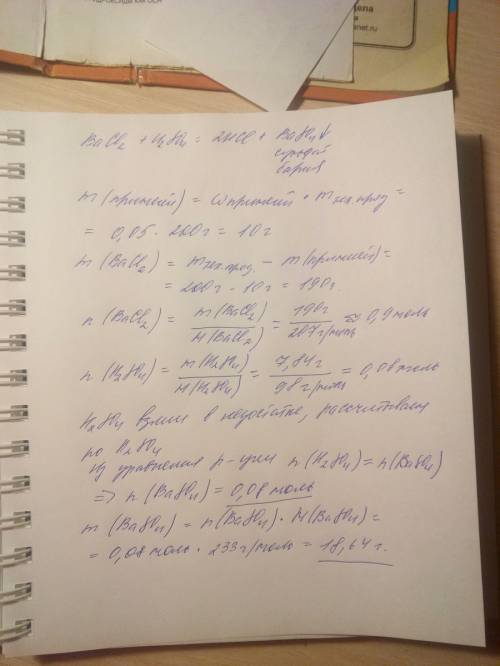 дела
anet.ru
BaCl₂ + H₂SO₄ = 2HCl + BaSO₄↓
сульфат
бария
m(примесей) = ωпримесей · mтех.прод =
= 0,05 · 200г = 10г
m(BaCl₂) = mтех.прод. - m(примесей) =
= 200г - 10г = 190г.
n(BaCl₂) = m(BaCl₂)/M(BaCl₂) = 190г/207г/моль ≈ 0,9моль
n(H₂SO₄) = m(H₂SO₄)/M(H₂SO₄) = 7,84г/98г/моль = 0,08моль
H₂SO₄ взяли в недостатке, рассчитываем
по H₂SO₄
Из уравнения р-ции n(H₂SO₄) = n(BaSO₄)
⇒ n(BaSO₄) = 0,08моль
m(BaSO₄) = n(BaSO₄) · M(BaSO₄) =
= 0,08моль · 233г/моль = 18,64г.